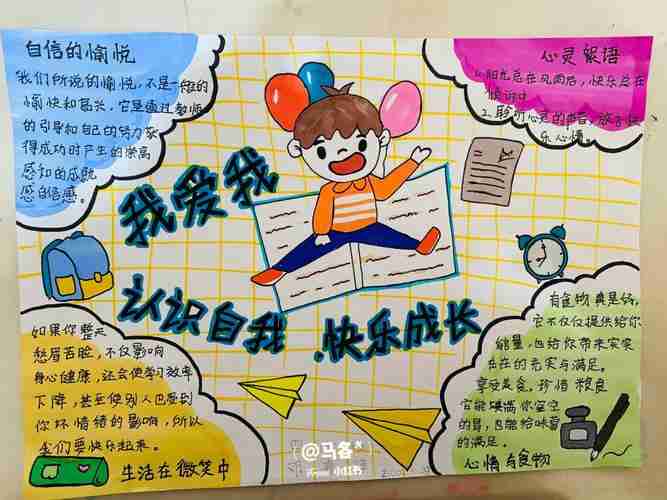 自信的愉悦
我们所说的愉悦,不是一般的
愉快和高兴,它是通过教师
的引导和自己的努力获
得成功时产生的崇高
感和的成就
感自信感。
心灵絮语
1.阳光总在风雨后,快乐总在
惊讶中
2.聆听心灵的声音,放飞快
乐心情。
我爱我
认识自我.快乐成长
如果你整天
愁眉苦脸,不仅影响
身心健康,还会使学习效率
下降,甚至使别人也受到
你坏情绪的影响,所以
我们要快乐起来。
生活在微笑中
有食物真是好,
它不仅仅提供给你
能量,也给你带来实实
在在的充实与满足。
享受美食,珍惜粮食
它能填满你空空
的胃,也能给味蕾
的满足。
心情与食物
@马各
小红书